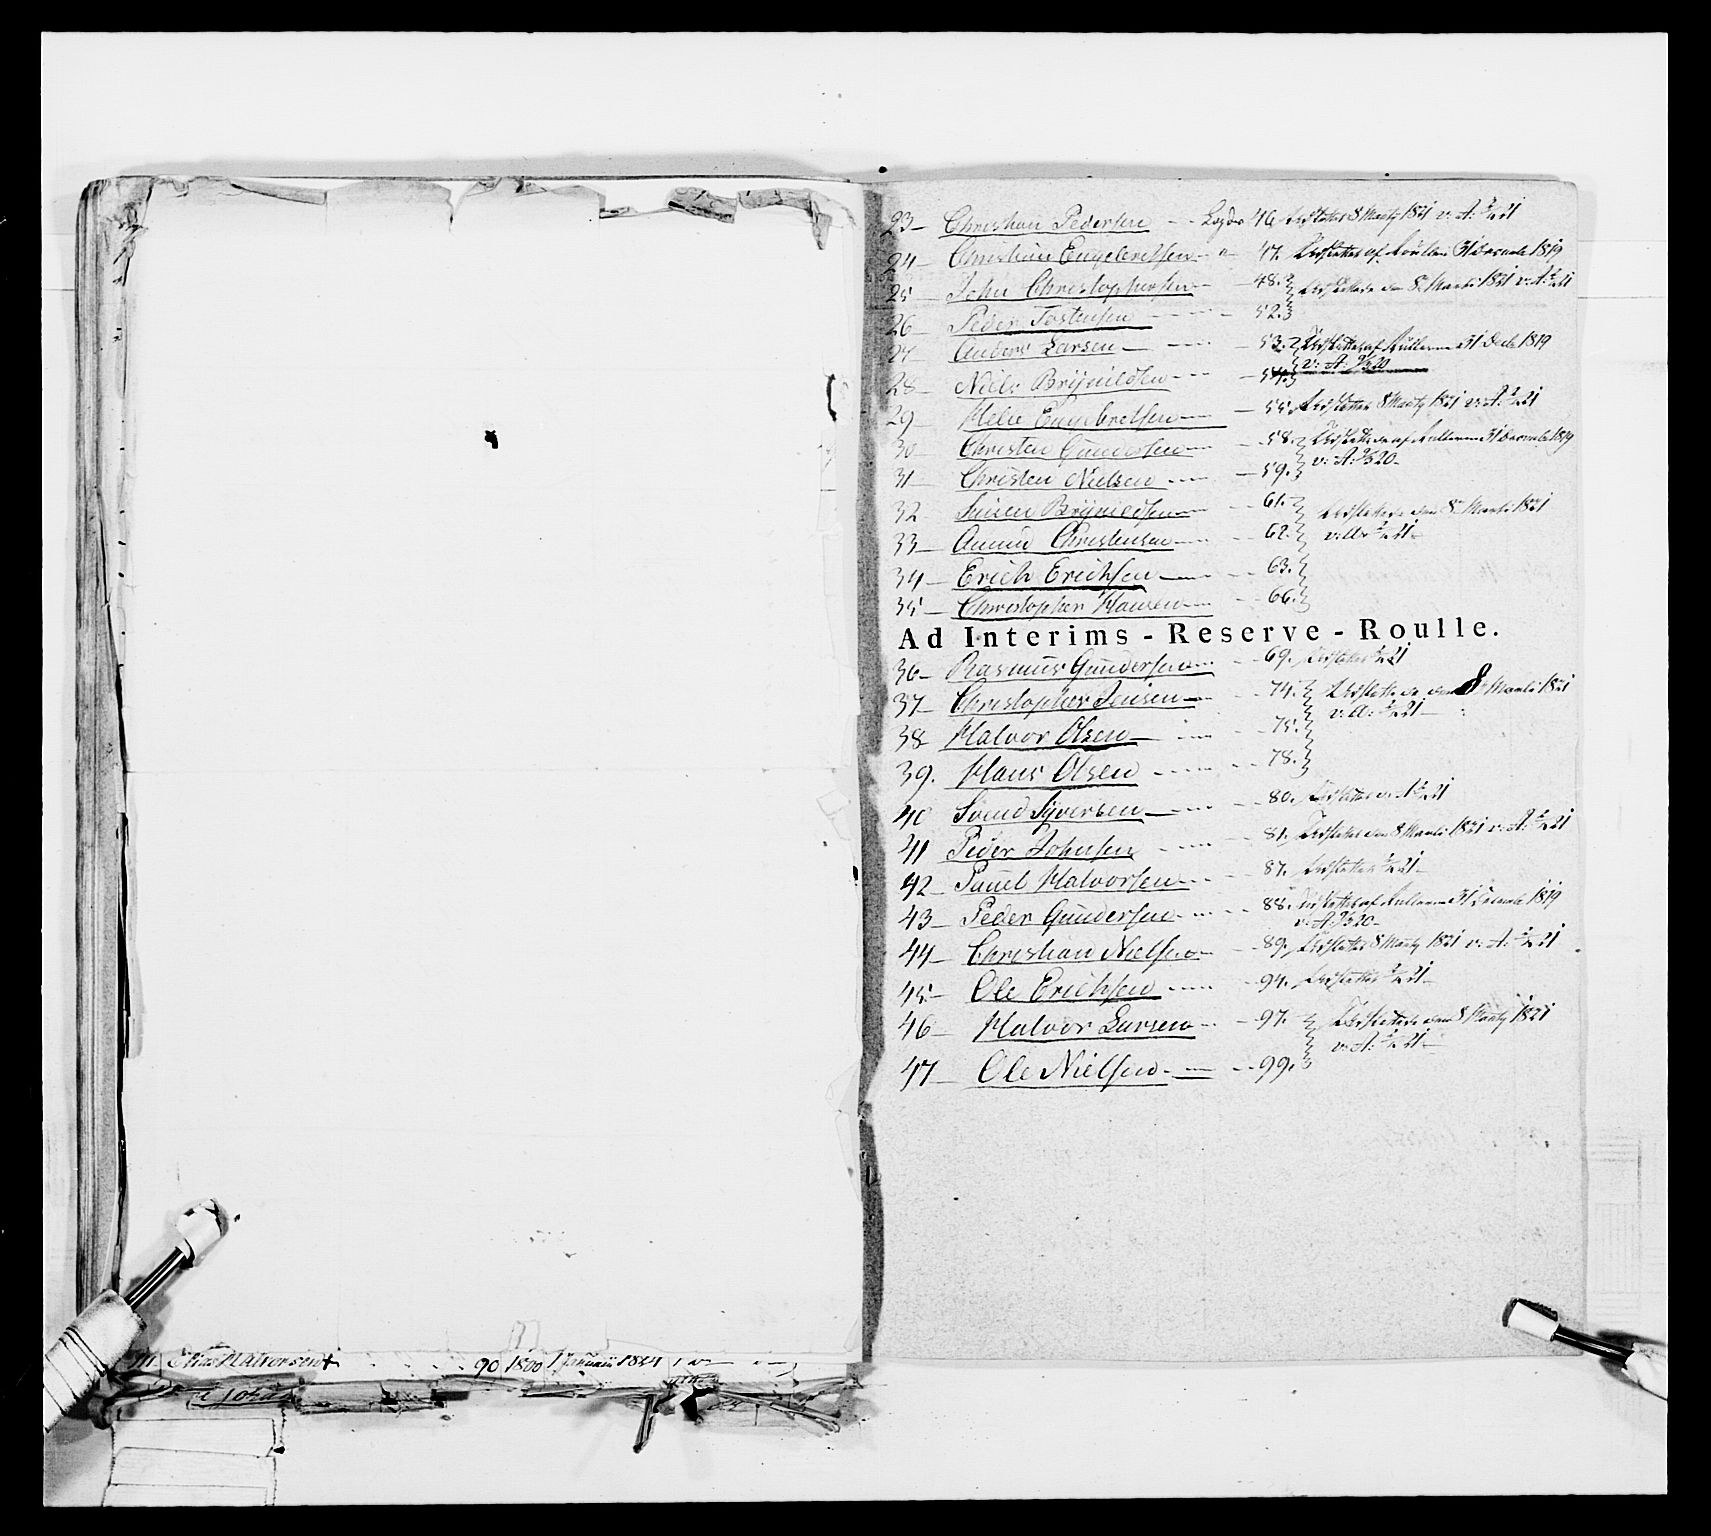 23 - Christian Pedersen - - Lægdr 46 Udslettet 8 Martz 1821 v: A: 2/4 21
24 - Christian Engebretsen - " - 47. Udslettes af Roullen 31 Decembr 1819
25 - John Christophersen - - 48. Udslettede den 8 Martii 1821 v: A: 21
26 - Peder Tostensen - - - 52.
27 - Anders Larsen - - - 53. Udslettet af Rullerne 31 Decbr 1819
v: A: 20
28 - Niels Brÿnildsen - - - 54.
29 - Helie Engebretsen - - 55. Udslettet 8 Martz 1821 v: A: 21
30 - Christen Gundersen - - 58. Udslettede af Rullerne 31 Decembr 1819
31 - Christen Nielsen - - - 59. v: A: 20 -
32 - Brÿnildsen - - 61. Udslettede den 8 Martii 1821
33 - Amund Christensen - - 62. 21 -
34 - Erich Erichsen - - - 63.
35 - Christopher Hansen - - 66.
Ad Interims - Reserve - Roulle.
36 - Rasmus Gundersen - - 69. Udslettet 21
37 - Christopher Jensen - - 74. Udslettede den 8 Martii 1821
v: A: 21 -
38 Halvor Olsen - - - 75.
39. Hans Olsen - - - 78.
40 Svend Syversen - - - 80. Udslettet v: A 21
41 Peder Johnsen - - - 81. Udslettet den 8 Martii 1821 v: A: 21
42 - Pauel Halvorsen - - - 87. Udslettet 21 -
43 - Peder Gundersen - - - 88. Udslettet af Rullerne 31 Decembr 1819
v: A: 20 -
44 - Christian Nielsen - - 89. Udslettet 8 Martz 1821 v: A: 21
45 - Ole Erichsen - - - 94. Udslettet 21 -
46 - Halvor Larsen - - - 97. Udslettede den 8 Martz 1821
v: A: 21 -
47 - Ole Nielsen - - - 99.
Elias Halvorsen + 90 1800 1 Januarii 1824